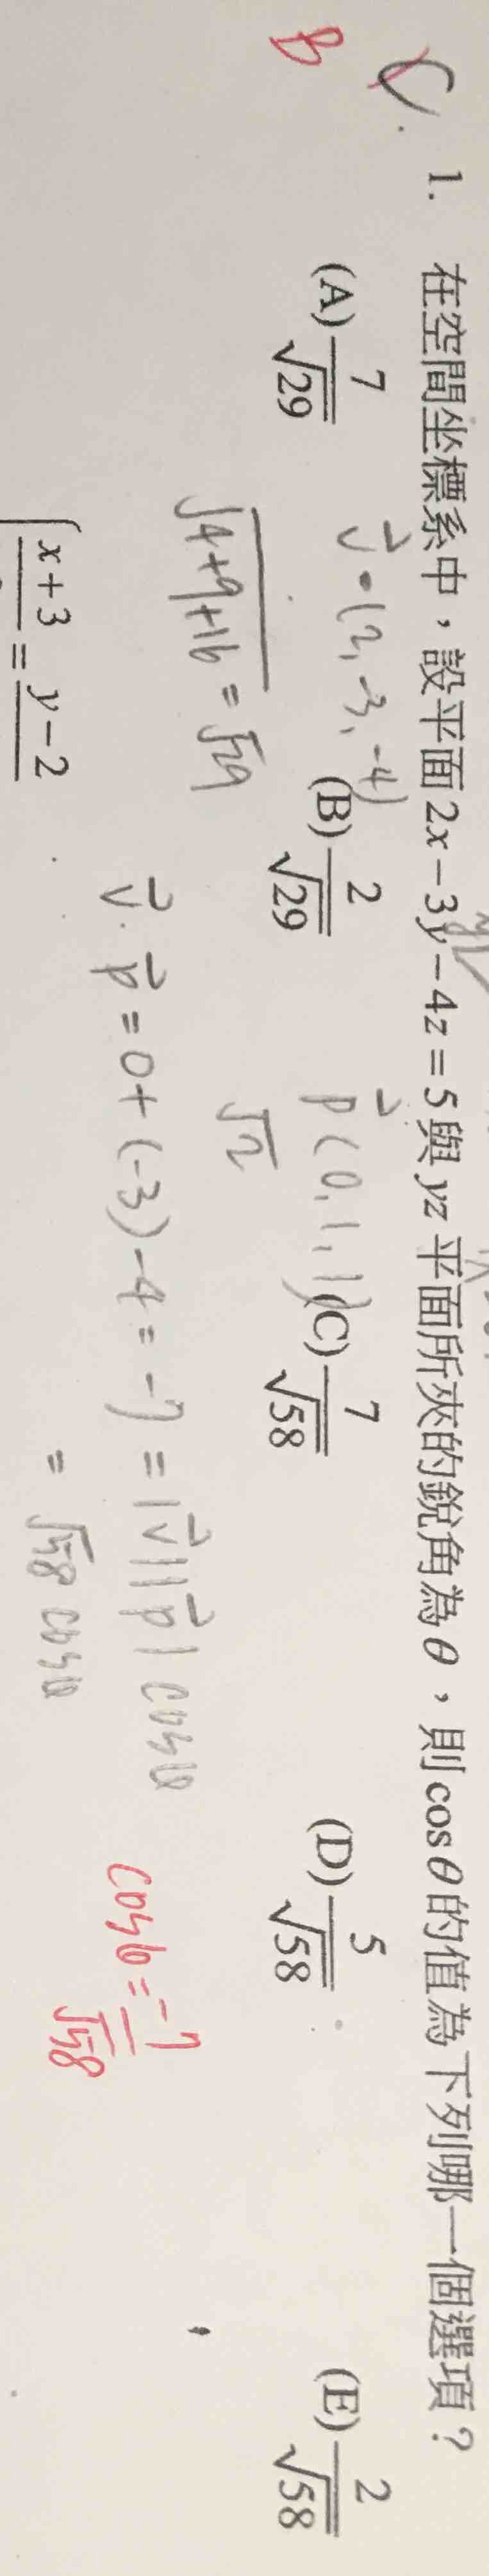 C.
B
1. 在空間坐標系中，設平面 2x－3y－4z＝5 與 yz 平面所夾的銳角為 θ，則 cosθ 的值為下列哪一個選項？
(A) 7/√29 (B) 2/√29 (C) 7/√58 (D) 5/√58 (E) 2/√58
v⃗ = (2, -3, -4)
p⃗ (0, 1, 1)
√(4+9+16) = √29
√2
v⃗ · p⃗ = 0 + (-3) - 4 = -7 = |v⃗||p⃗| cosθ
= √58 cosθ
cosθ = -7/√58
x+3 = y-2